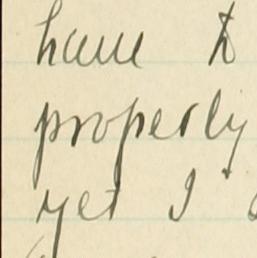 have to
properly
yet I